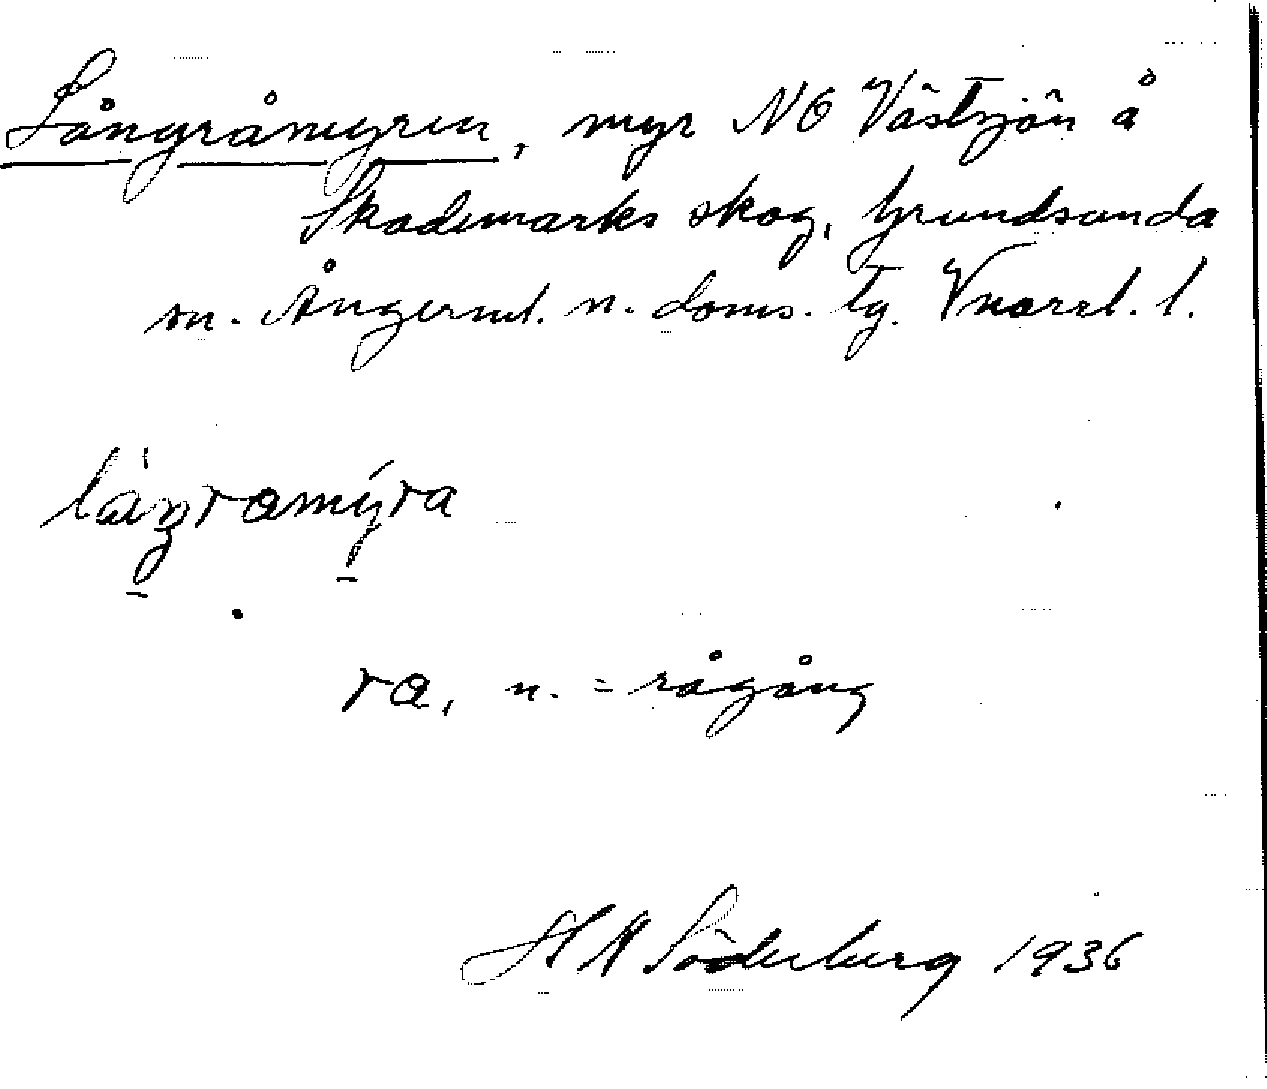 Långråmyren, myr NO Västsjön å
Skademarks skog, Grundsunda
sn. Ångerml. n. doms. lg. Vnorrl. l.
ra, n. = rågång
H A Söderberg 1936